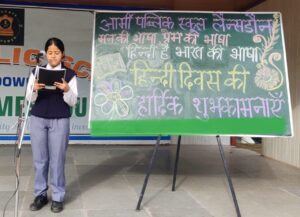 आर्मी पब्लिक स्कूल लैन्सडौन
मन की भाषा प्रेम की भाषा
हिन्दी है भारत की भाषा
हिन्दी दिवस की
हार्दिक शुभकामनाएँ